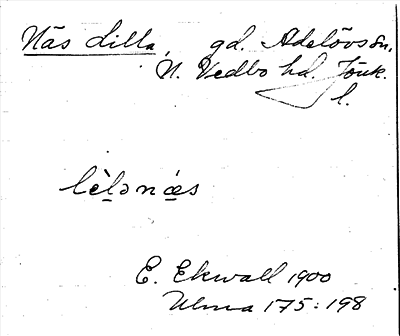 Näs Lilla, gd. Adelövs sn.
N. Vedbo hd. Jönk.
l.
lèlənæs
E. Ekwall 1900
Ulma 175:198